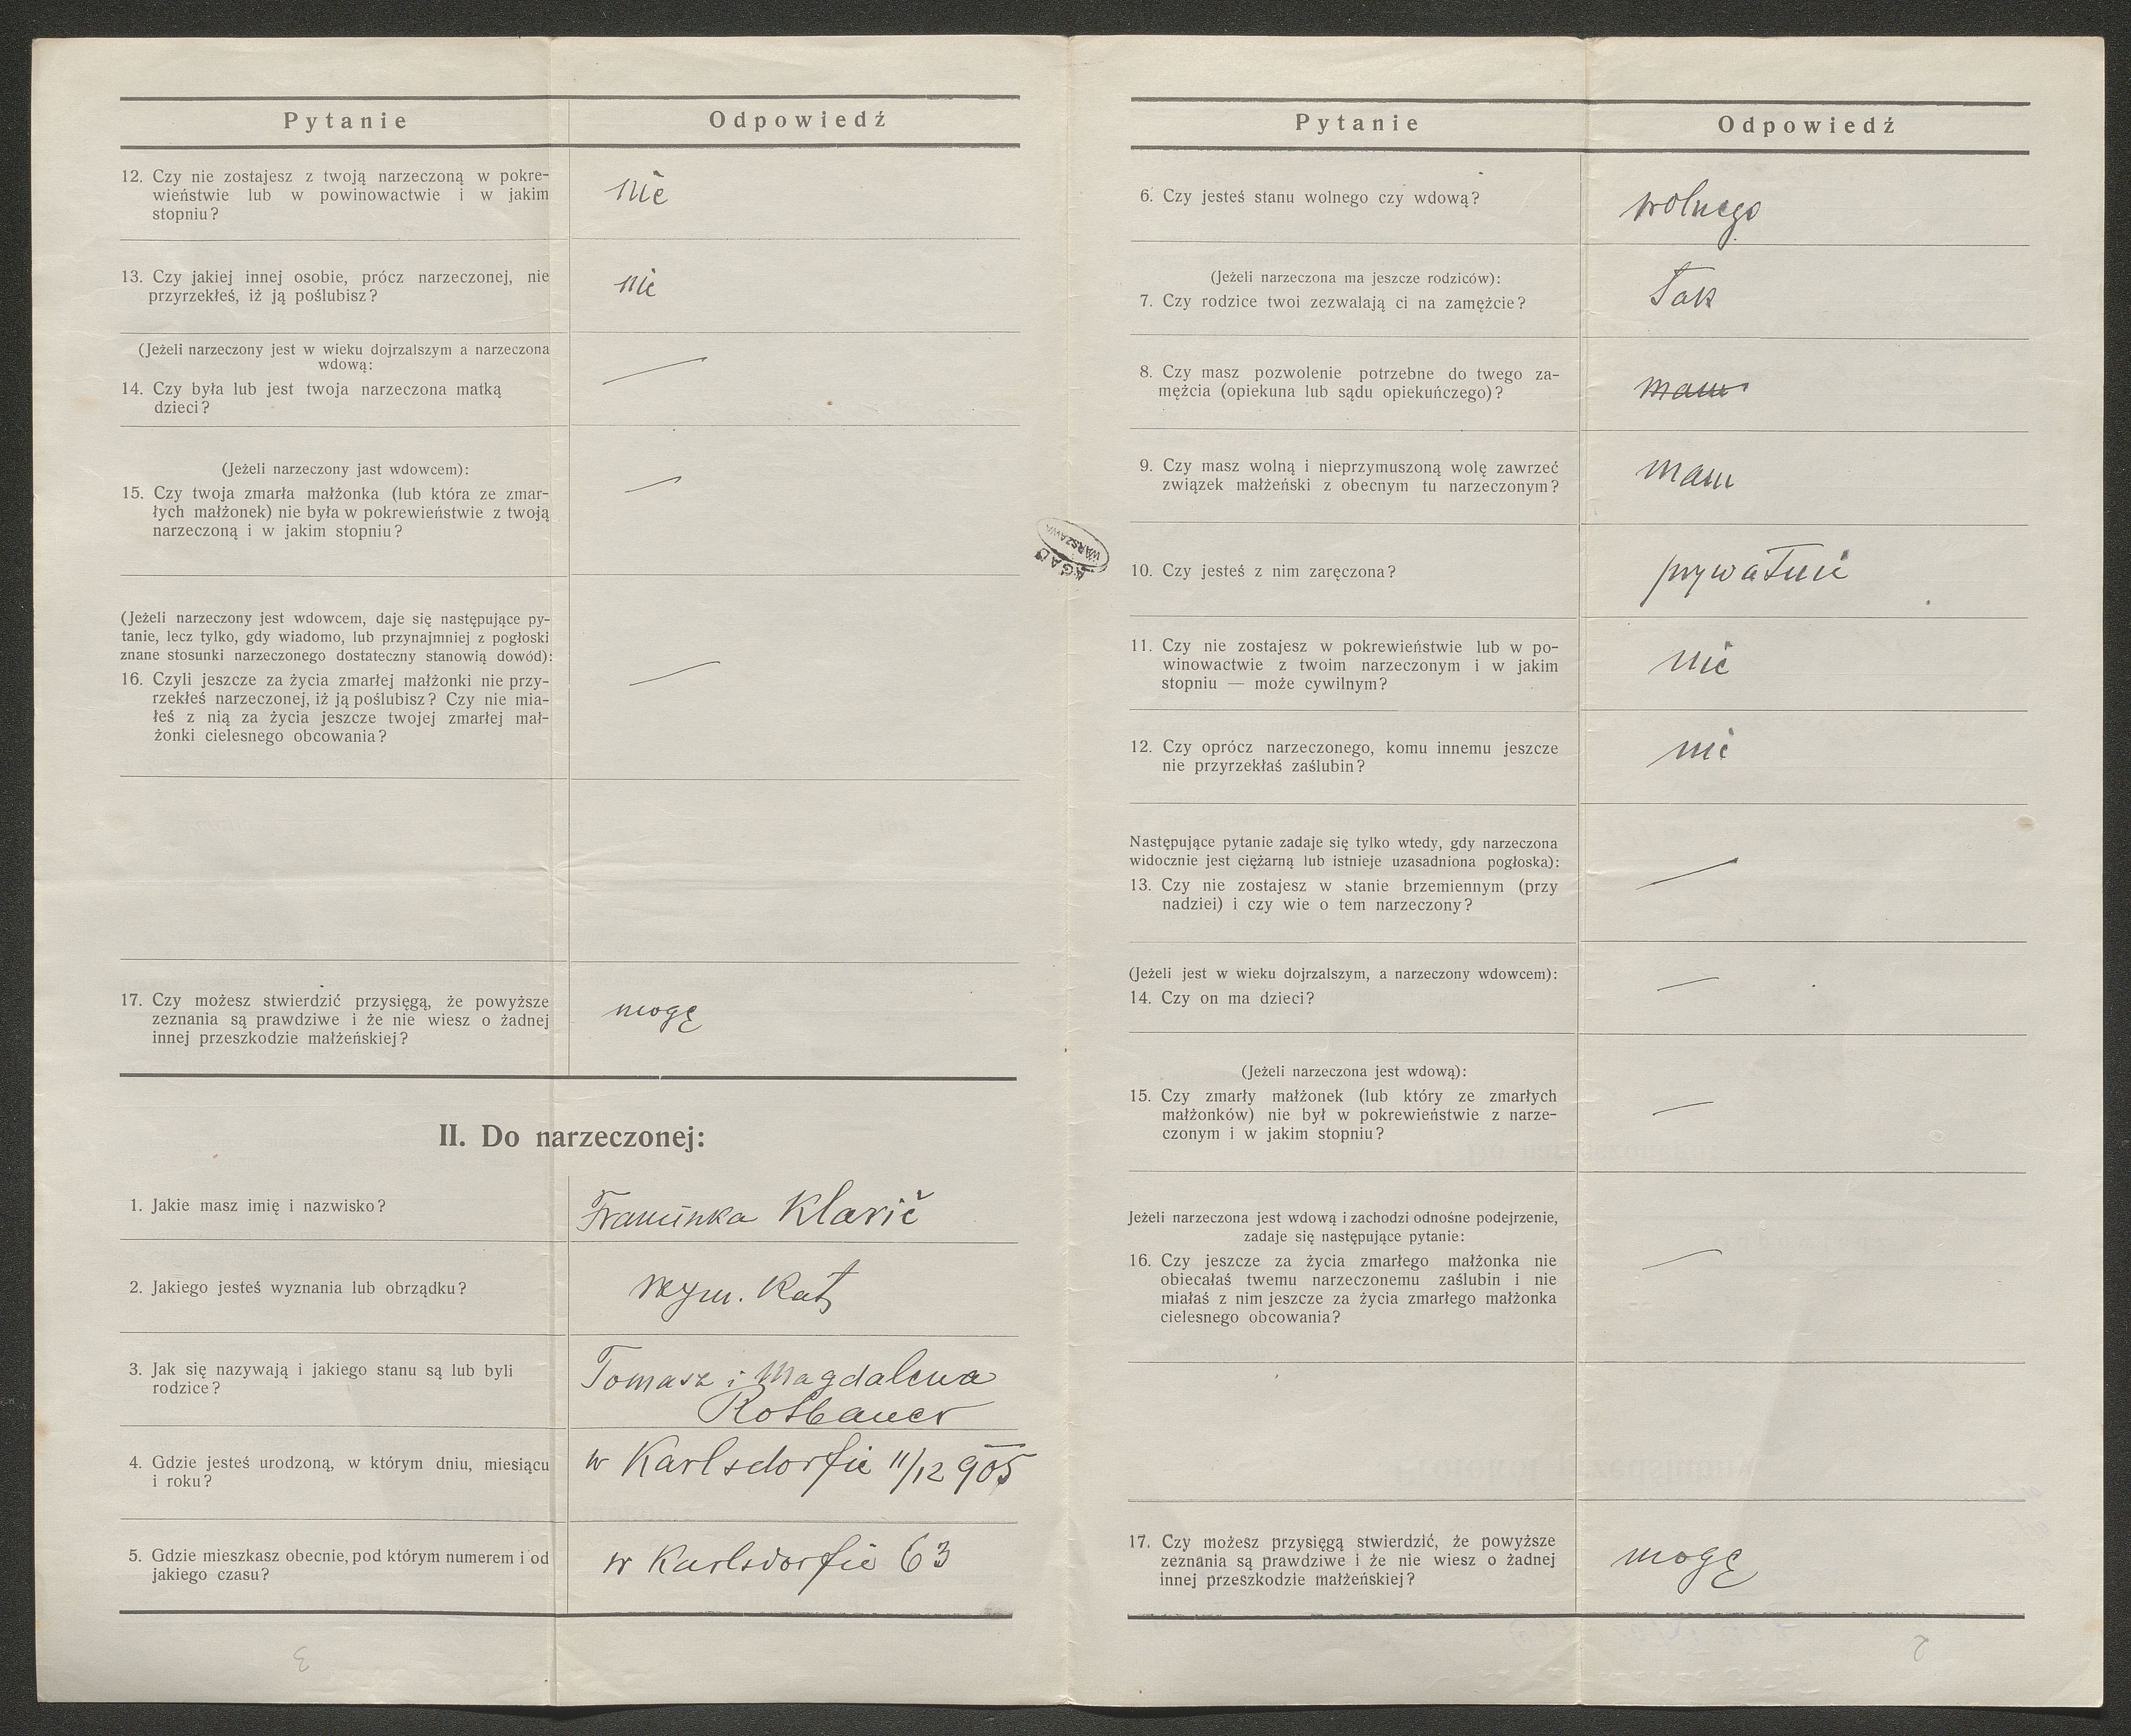 Pytanie Odpowiedź
12. Czy nie zostajesz z twoją narzeczoną w pokre-
wieństwie lub w powinowactwie i w jakim
stopniu?
nie
13. Czy jakiej innej osobie, prócz narzeczonej, nie
przyrzekłeś, iż ją poślubisz?
nie
(Jeżeli narzeczony jest w wieku dojrzalszym a narzeczona
wdową:
14. Czy była lub jest twoja narzeczona matką
dzieci?
—
(Jeżeli narzeczony jast wdowcem):
15. Czy twoja zmarła małżonka (lub która ze zmar-
łych małżonek) nie była w pokrewieństwie z twoją
narzeczoną i w jakim stopniu?
—
(Jeżeli narzeczony jest wdowcem, daje się następujące py-
tanie, lecz tylko, gdy wiadomo, lub przynajmniej z pogłoski
znane stosunki narzeczonego dostateczny stanowią dowód):
16. Czyli jeszcze za życia zmarłej małżonki nie przy-
rzekłeś narzeczonej, iż ją poślubisz? Czy nie mia-
łeś z nią za życia jeszcze twojej zmarłej mał-
żonki cielesnego obcowania?
—
17. Czy możesz stwierdzić przysięgą, że powyższe
zeznania są prawdziwe i że nie wiesz o żadnej
innej przeszkodzie małżeńskiej?
mogę
II. Do narzeczonej:
1. Jakie masz imię i nazwisko?
Klarič
2. Jakiego jesteś wyznania lub obrządku?
rzym. Kat
3. Jak się nazywają i jakiego stanu są lub byli
rodzice?
Tomasz i Magdalena
Rotbauer
4. Gdzie jesteś urodzoną, w którym dniu, miesiącu
i roku?
w Karlsdorfie 11/12 905
5. Gdzie mieszkasz obecnie, pod którym numerem i od
jakiego czasu?
w Karlsdorfie 63
3
AGAD
WARSZAWA
Pytanie Odpowiedź
6. Czy jesteś stanu wolnego czy wdową?
wolnego
(Jeżeli narzeczona ma jeszcze rodziców):
7. Czy rodzice twoi zezwalają ci na zamężcie?
Tak
8. Czy masz pozwolenie potrzebne do twego za-
mężcia (opiekuna lub sądu opiekuńczego)?
mam
9. Czy masz wolną i nieprzymuszoną wolę zawrzeć
związek małżeński z obecnym tu narzeczonym?
mam
10. Czy jesteś z nim zaręczona?
prywatnie
11. Czy nie zostajesz w pokrewieństwie lub w po-
winowactwie z twoim narzeczonym i w jakim
stopniu — może cywilnym?
nie
12. Czy oprócz narzeczonego, komu innemu jeszcze
nie przyrzekłaś zaślubin?
nie
Następujące pytanie zadaje się tylko wtedy, gdy narzeczona
widocznie jest ciężarną lub istnieje uzasadniona pogłoska):
13. Czy nie zostajesz w stanie brzemiennym (przy
nadziei) i czy wie o tem narzeczony?
—
(Jeżeli jest w wieku dojrzalszym, a narzeczony wdowcem):
14. Czy on ma dzieci?
—
(Jeżeli narzeczona jest wdową):
15. Czy zmarły małżonek (lub który ze zmarłych
małżonków) nie był w pokrewieństwie z narze-
czonym i w jakim stopniu?
—
Jeżeli narzeczona jest wdową i zachodzi odnośne podejrzenie,
zadaje się następujące pytanie:
16. Czy jeszcze za życia zmarłego małżonka nie
obiecałaś twemu narzeczonemu zaślubin i nie
miałaś z nim jeszcze za życia zmarłego małżonka
cielesnego obcowania?
—
17. Czy możesz przysięgą stwierdzić, że powyższe
zeznania są prawdziwe i że nie wiesz o żadnej
innej przeszkodzie małżeńskiej?
mogę
2